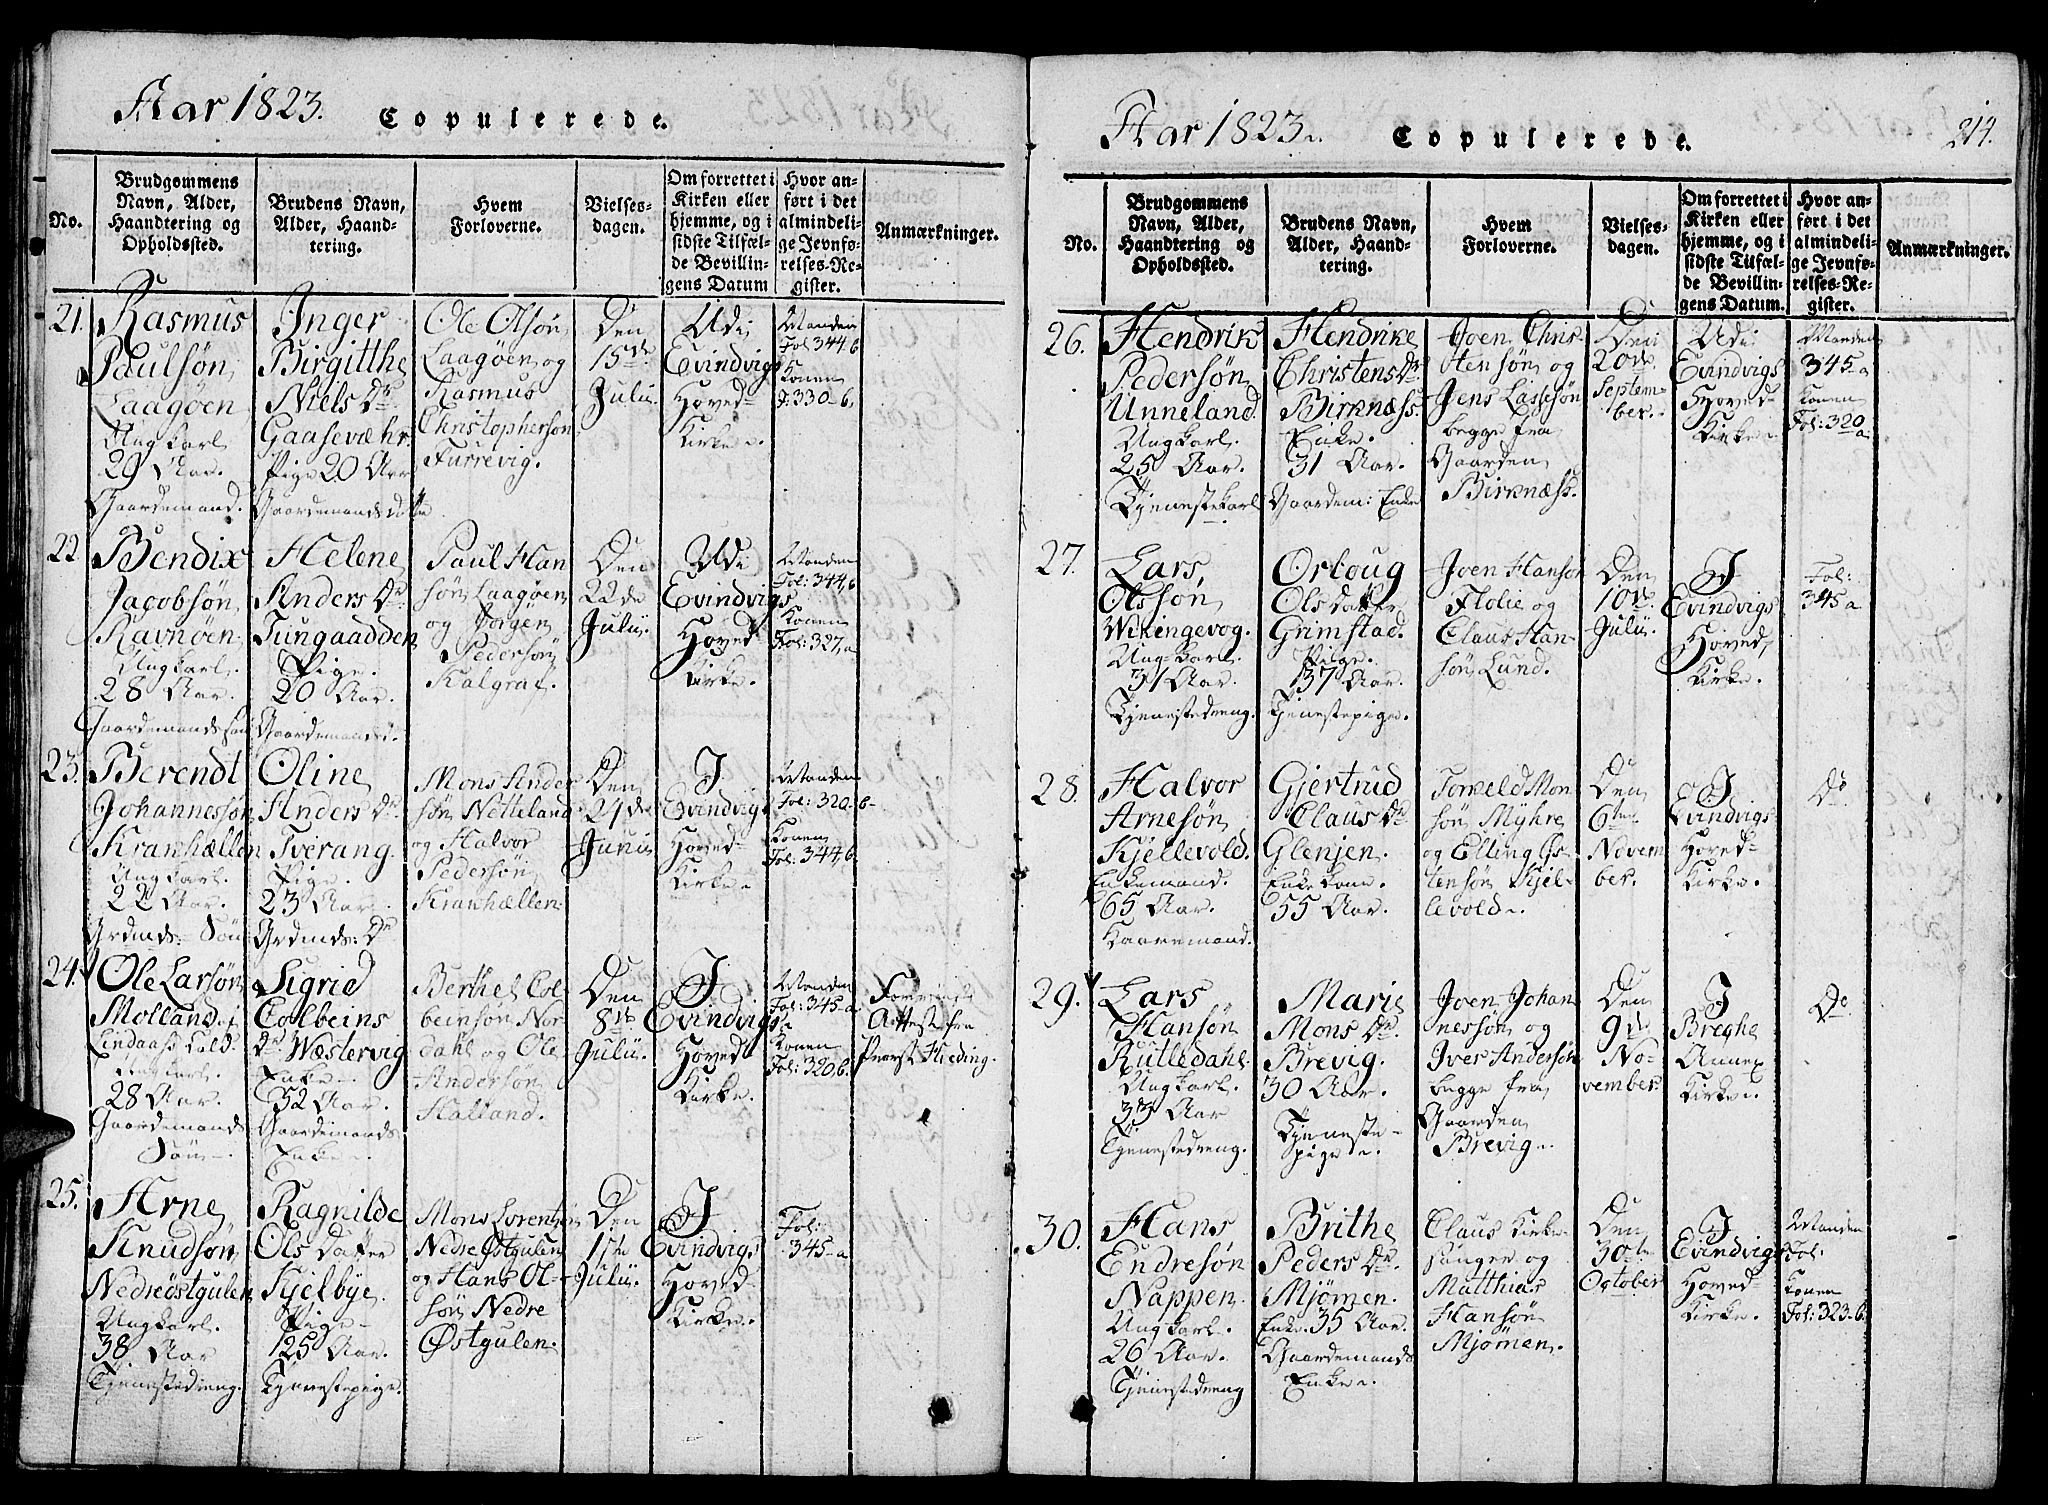 Aar 1823.
Copulerede.
No.
Brudgommens
Navn, Alder,
Haandtering og
Opholdssted.
Brudens Navn,
Alder, Haand-
tering.
Hvem
Forloverne.
Vielses-
dagen.
Om forrettet i
Kirken eller
hjemme, og i
sidste Tilfæl-
de Bevillin-
gens Datum
Hvor an-
ført i det
almindeli-
ge Jevnfø-
relses-Re-
gister.
Anmærkninger.
21.
Rasmus
Paulsøn
Laagøen
Ungkarl
29 Aar.
Gaardemand.
Inger
Birgitthe
Niels Dr
Gaasevæhr.
Pige 20 Aar
Gaardemands datte
Ole Olsøn
Laagøen og
Rasmus
Christophersøn
Furrevig.
Den
15de
Julii
Udi
Evindvigs
Hoved-
Kirke.
Manden
Fol: 344 b
Konen
F: 330-b
22
Bendix
Jacobsøn
Ravnøen
Ungkarl.
28 Aar.
Gaardemands søn
Helene
Anders Dr
Tungaadden
Pige.
20 Aar.
Gaardemands d:
Paul Han
søn Laagøen
og Jørgen
Pedersøn
Kalgraf.
Den
22de
Julii.
Udi
Evindvigs
Hoved-
Kirke.
Manden
Fol: 344, b
Konen
Fol: 327, a
23.
Berendt
Johannessøn
Kranhællen
Ungkarl.
22 Aar.
Grdmds: Søn
Oline
Anders Dr
Tverang.
Pige.
23 Aar.
Grdmds: Dr
Mons Ander
søn Netteland
og Halvor
Pedersøn
Kranhællen.
Den
24de
Junii
I
Evindvigs
Hoved-
Kirke.
Manden
Fol: 320-b-
Konen
Fol: 344, b.
24.
Ole Larsøn
Molland i
Lindaas Cald.
Ungkarl.
28 Aar.
Gaardemands
Søn.
Sigrid
Colbeins
Dr Wæstervig
Enke.
52 Aar.
Gaardemands
Enke.
Berthel Col
beinsøn Nor
dahl og Ole
Andersøn
Halland.
Den
8de
Julii.
I
Evindvigs
Hoved-
Kirke.
Manden
Fol: 345-a
Konen
Fol: 320 b.
Attest fra
Præst Heding.
25.
Arne
Knudsøn
Nedreøstgulen
Ungkarl.
38 Aar
Tjenestedreng.
Ragnilde
Ols datter
Kjelbye.
Pige.
25 Aar.
Tjenestepige.
Mons Lorentsøn
Nedre Østgulen
og Hans Ol-
søn Nedre
Østgulen.
Den
1ste
Julii.
I
Evindvigs
Hoved-
Kirke.
Fol:
345-a
Aar 1823.
Copulerede.
214.
No.
Brudgommens
Navn, Alder,
Haandtering og
Opholdssted.
Brudens Navn,
Alder, Haand-
tering.
Hvem
Forloverne.
Vielses-
dagen.
Om forrettet i
Kirken eller
hjemme, og i
sidste Tilfæl-
de Bevillin-
gens Datum.
Hvor an-
ført i det
almindeli-
ge Jevnfø-
relses-Re-
gister.
Anmærkninger.
26.
Hendrik
Pedersøn
Unneland.
Ungkarl.
25 Aar.
Tjenestekarl
Hendrike
Christens Dr.
Birknæss.
Enke.
31 Aar.
Gaardem: Enke
Joen Chris-
tensøn og
Jens Lassesøn
begge fra
Gaarden
Birknæss.
Den
20de
Septem-
ber.
Udi
Evindvigs
Hoved
Kirke.
Manden
345-a
Konen
Fol: 320
a
27.
Lars
Olssøn
Wikingevog.
Ung-karl.
31 Aar.
Tjenestedreng.
Ortoug
Ols datter
Grimstad.
Pige.
37 Aar.
Tjenestepige.
Joen Hansøn
Flolie og
Claus Han-
søn Lund.
Den
10de
Julii.
I
Evindvigs
Hoved,
Kirke.
Fol:
345-a
28.
Halvor
Arnesøn
Kjellevold.
Enkemand.
65 Aar.
Kaaremand.
Gjertrud
Claus Dr
Glenjen.
Enke kone.
55 Aar.
Tomeld Mon
søn Myhre
og Elling Øs-
tensøn Kjel-
levold.
Den
6te
Novem
ber.
I
Evindvigs
Hoved-
Kirke.
Do
29.
Lars
Hansøn
Rutledahl.
Ungkarl.
33 Aar
Tjenestedreng.
Marie
Mons Dr.
Brevig.
30 Aar.
Tjeneste-
Pige.
Joen Johan
nessøn og
Iver Andersøn
begge fra
Gaarden
Brevig.
Den
9de
No-
vember.
I
Breghe
Annex
Kirke.
Do
30.
Hans
Endresøn
Nappen.
Ungkarl.
26 Aar.
Tjenestedreng
Brithe
Peders Dr.
Mjømen.
Enke. 35 Aar.
Gaardemands
Enke.
Claus Kirke-
sanger og
Matthias
Hansøn
Mjømen.
Den
30te
October
I
Evindvigs
Hoved-
Kirke.
Manden
Fol:
Konen
Fol: 323-b.